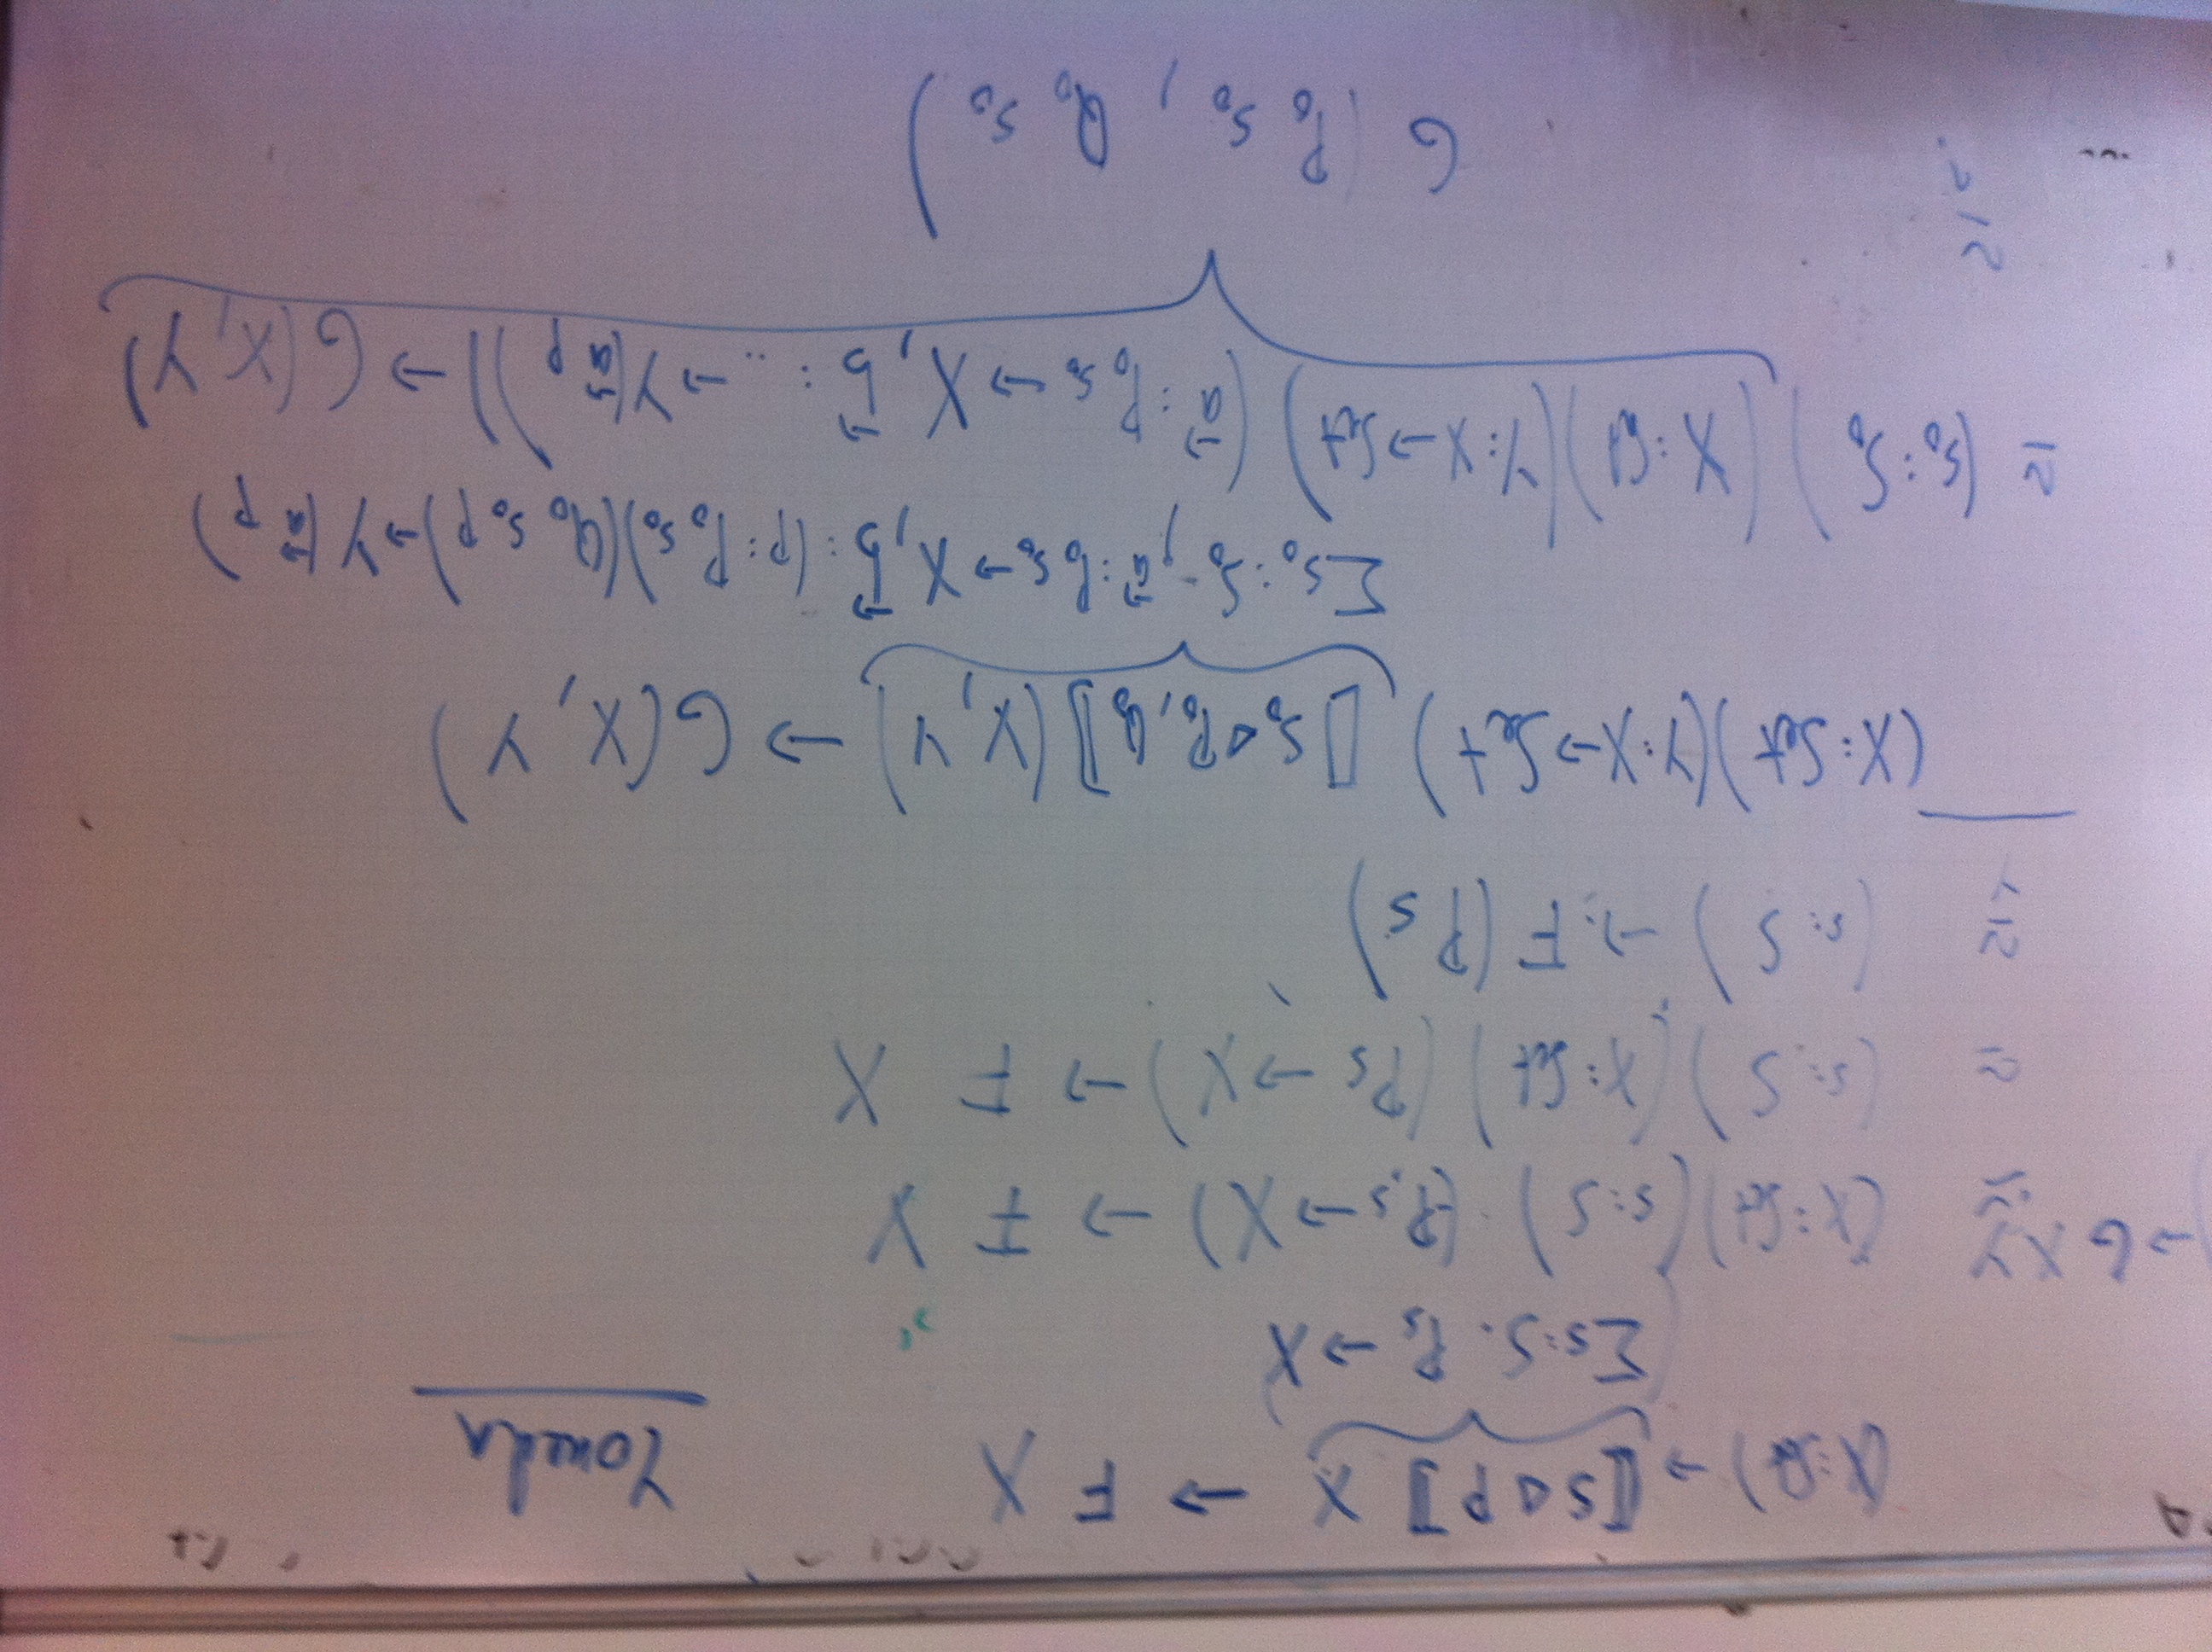 A
(X : Set) → ⟦S ◁ P⟧ X → F X
Yoneda
Σ s : S. P s → X
→ G X Y
≅ (X : Set) (s : S) (P s → X) → F X
≅ (s : S) (X : Set) (P s → X) → F X
≅ (s : S) → F (P s)
(X : Set) (Y : X → Set) ⟦S₀ ◁ P₀, Q₀⟧ (X, Y) → G(X, Y)
Σ s₀ : S₀, a⃗ : P₀ s₀ → X, b⃗ : (p : P₀ s₀)(Q₀ s₀ p) → Y (a⃗ p)
≅ (s₀ : S₀) (X : Set) (Y : X → Set) (a⃗ : P₀ s₀ → X, b⃗ : .. → Y(a⃗ p)) → G(X, Y)
≅
? G (P₀ s₀, Q₀ s₀)